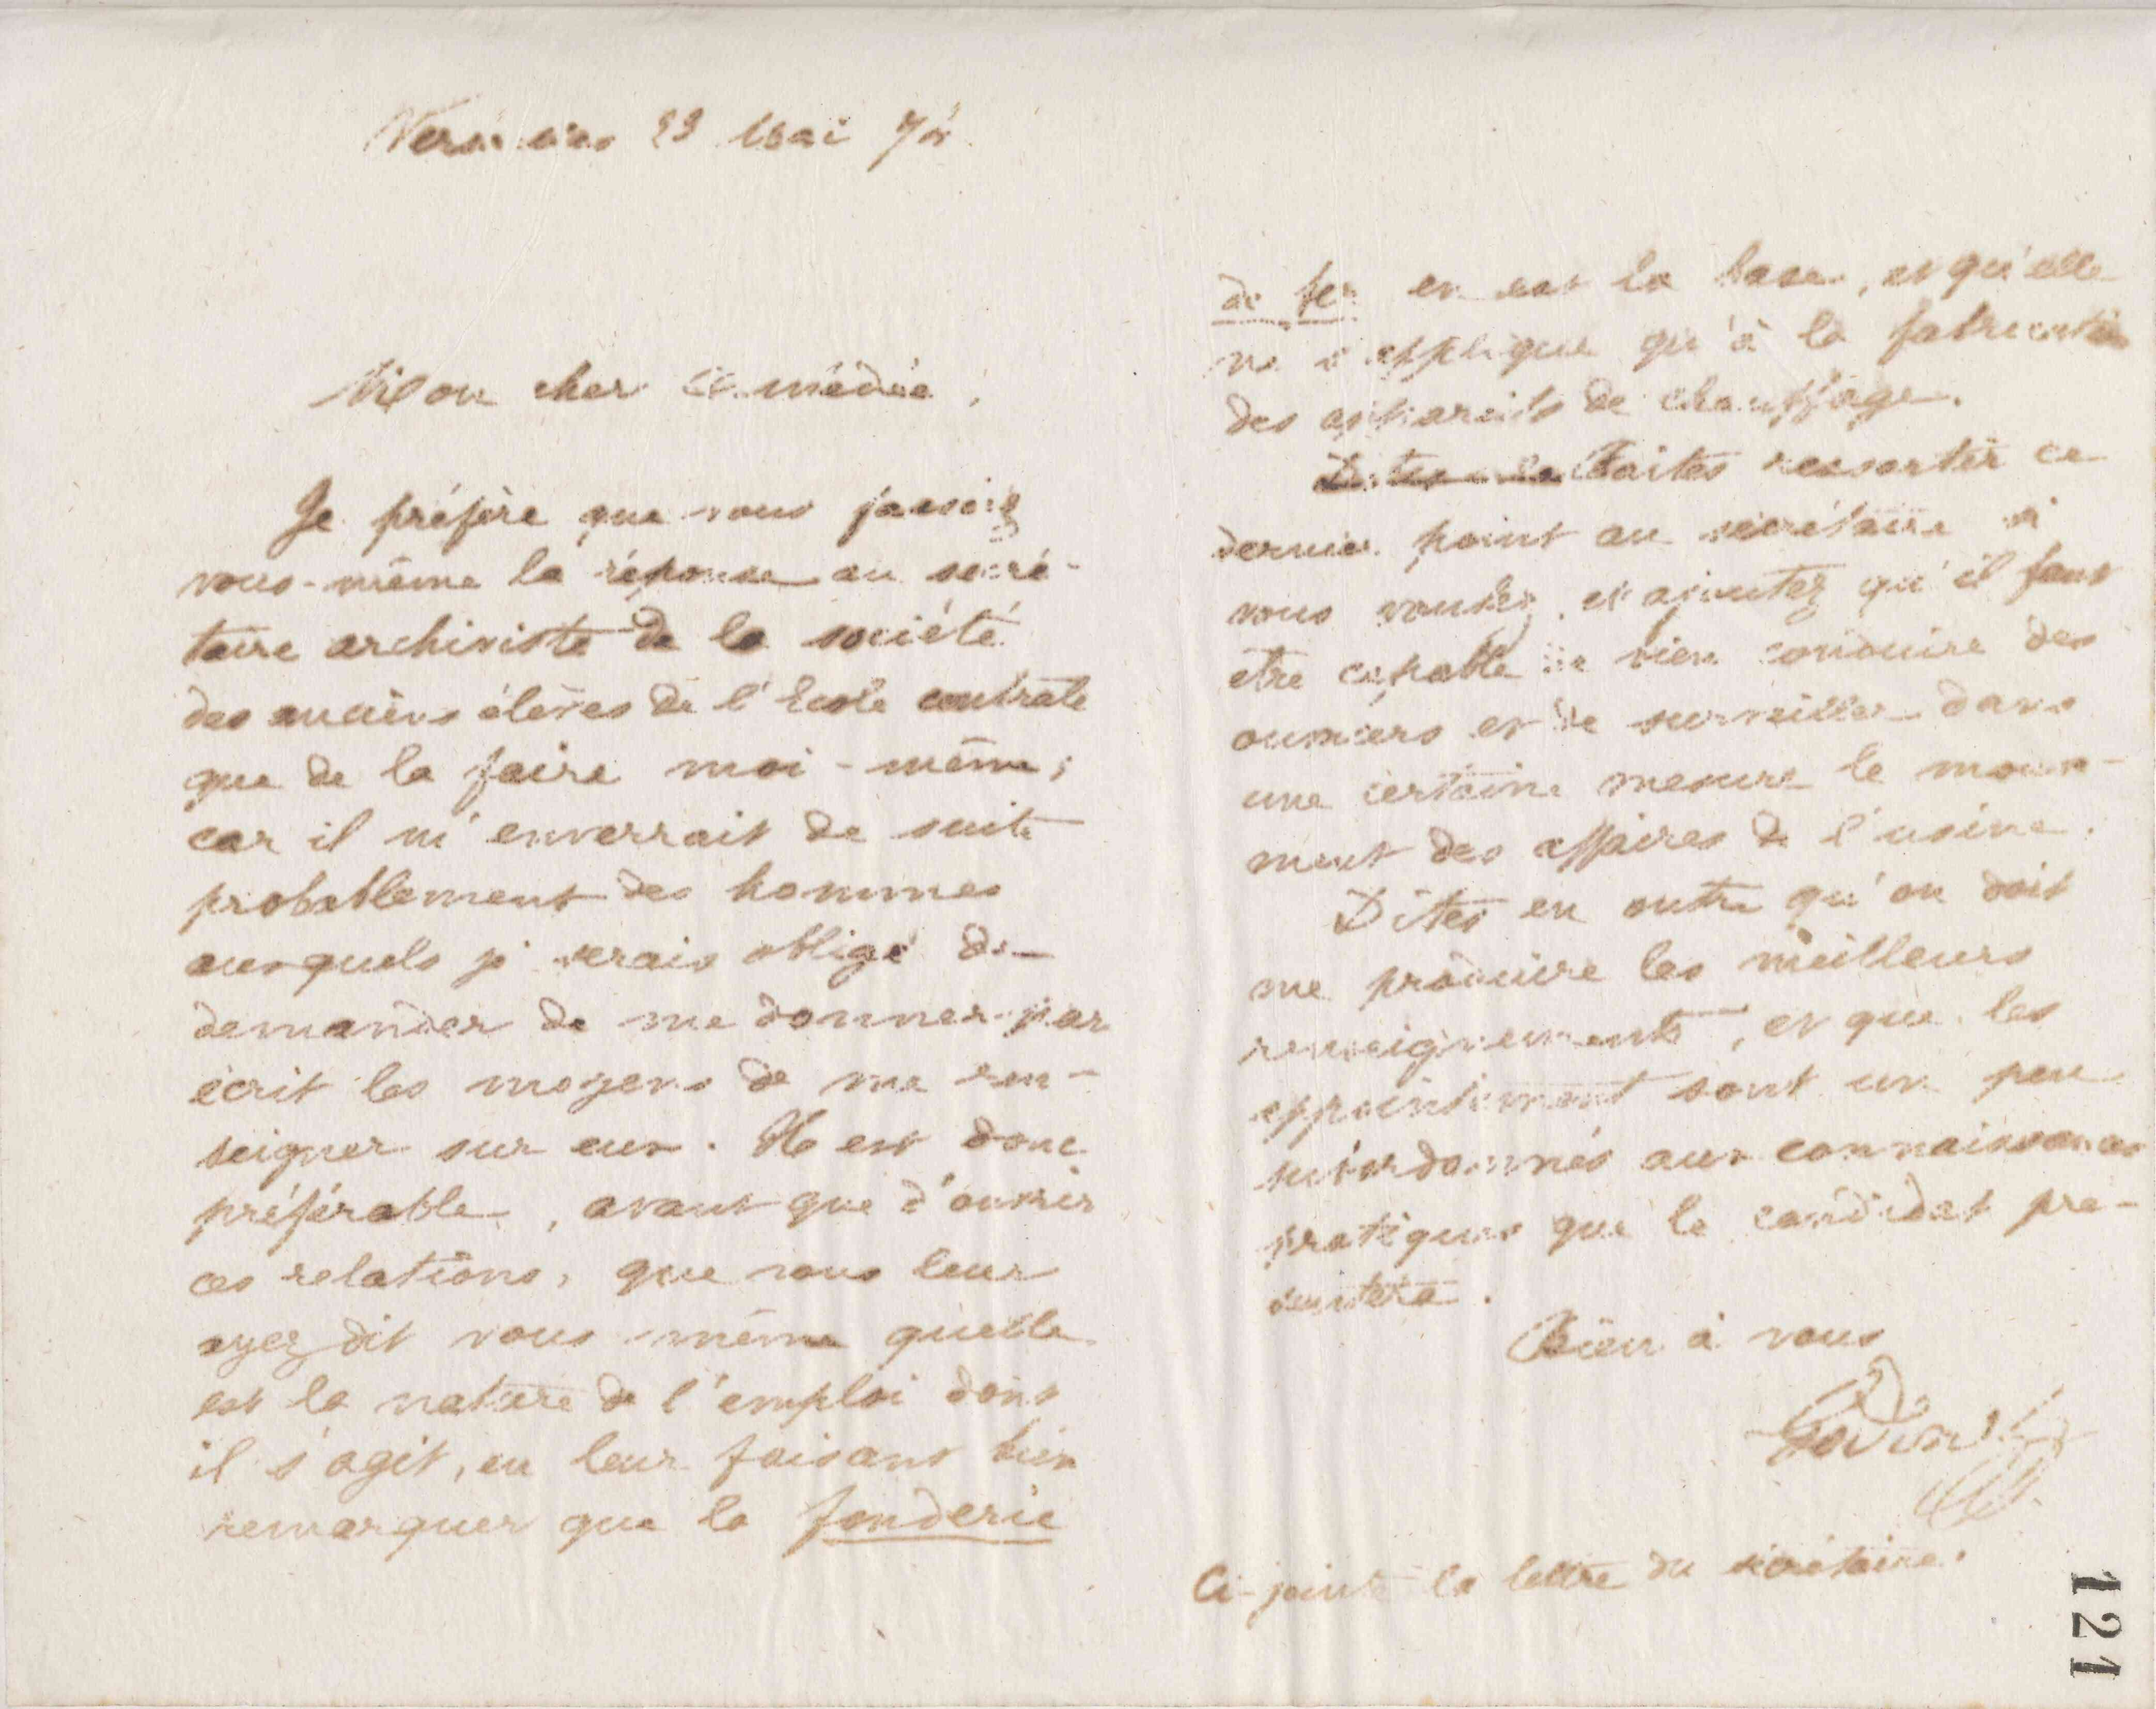 Versailles 29 Mai 75
Mon cher Amédée,
Je préfère que vous fassiez
vous-même la réponse au secré-
taire archiviste de la société
des anciens élèves de l'Ecole centrale
que de la faire moi-même;
car il m'enverrait de suite
probablement des hommes
auxquels je serais obligé de
demander de me donner par
écrit les moyens de me ren-
seigner sur eux. Il est donc
préférable, avant que d'ouvrir
ces relations, que vous leur
ayez dit vous même quelle
est la nature de l'emploi dont
il s'agit, en leur faisant bien
remarquer que la fonderie
de fer en est la base, et qu'elle
ne s'applique qu'à la fabrication
des appareils de chauffage.
Faites ressortir ce
dernier point au secrétaire si
vous voulez, et ajoutez qu'il faut
être capable de bien conduire des
ouvriers et de surveiller dans
une certaine mesure le mouve-
ment des affaires de l'usine.
Dites en outre qu'on doit
me produire les meilleurs
renseignements, et que les
appointement sont un peu
subordonnés aux connaissances
pratiques que le candidat pré-
sentera.
Bien à vous
Godin
Ci-joint la lettre du secrétaire.
121